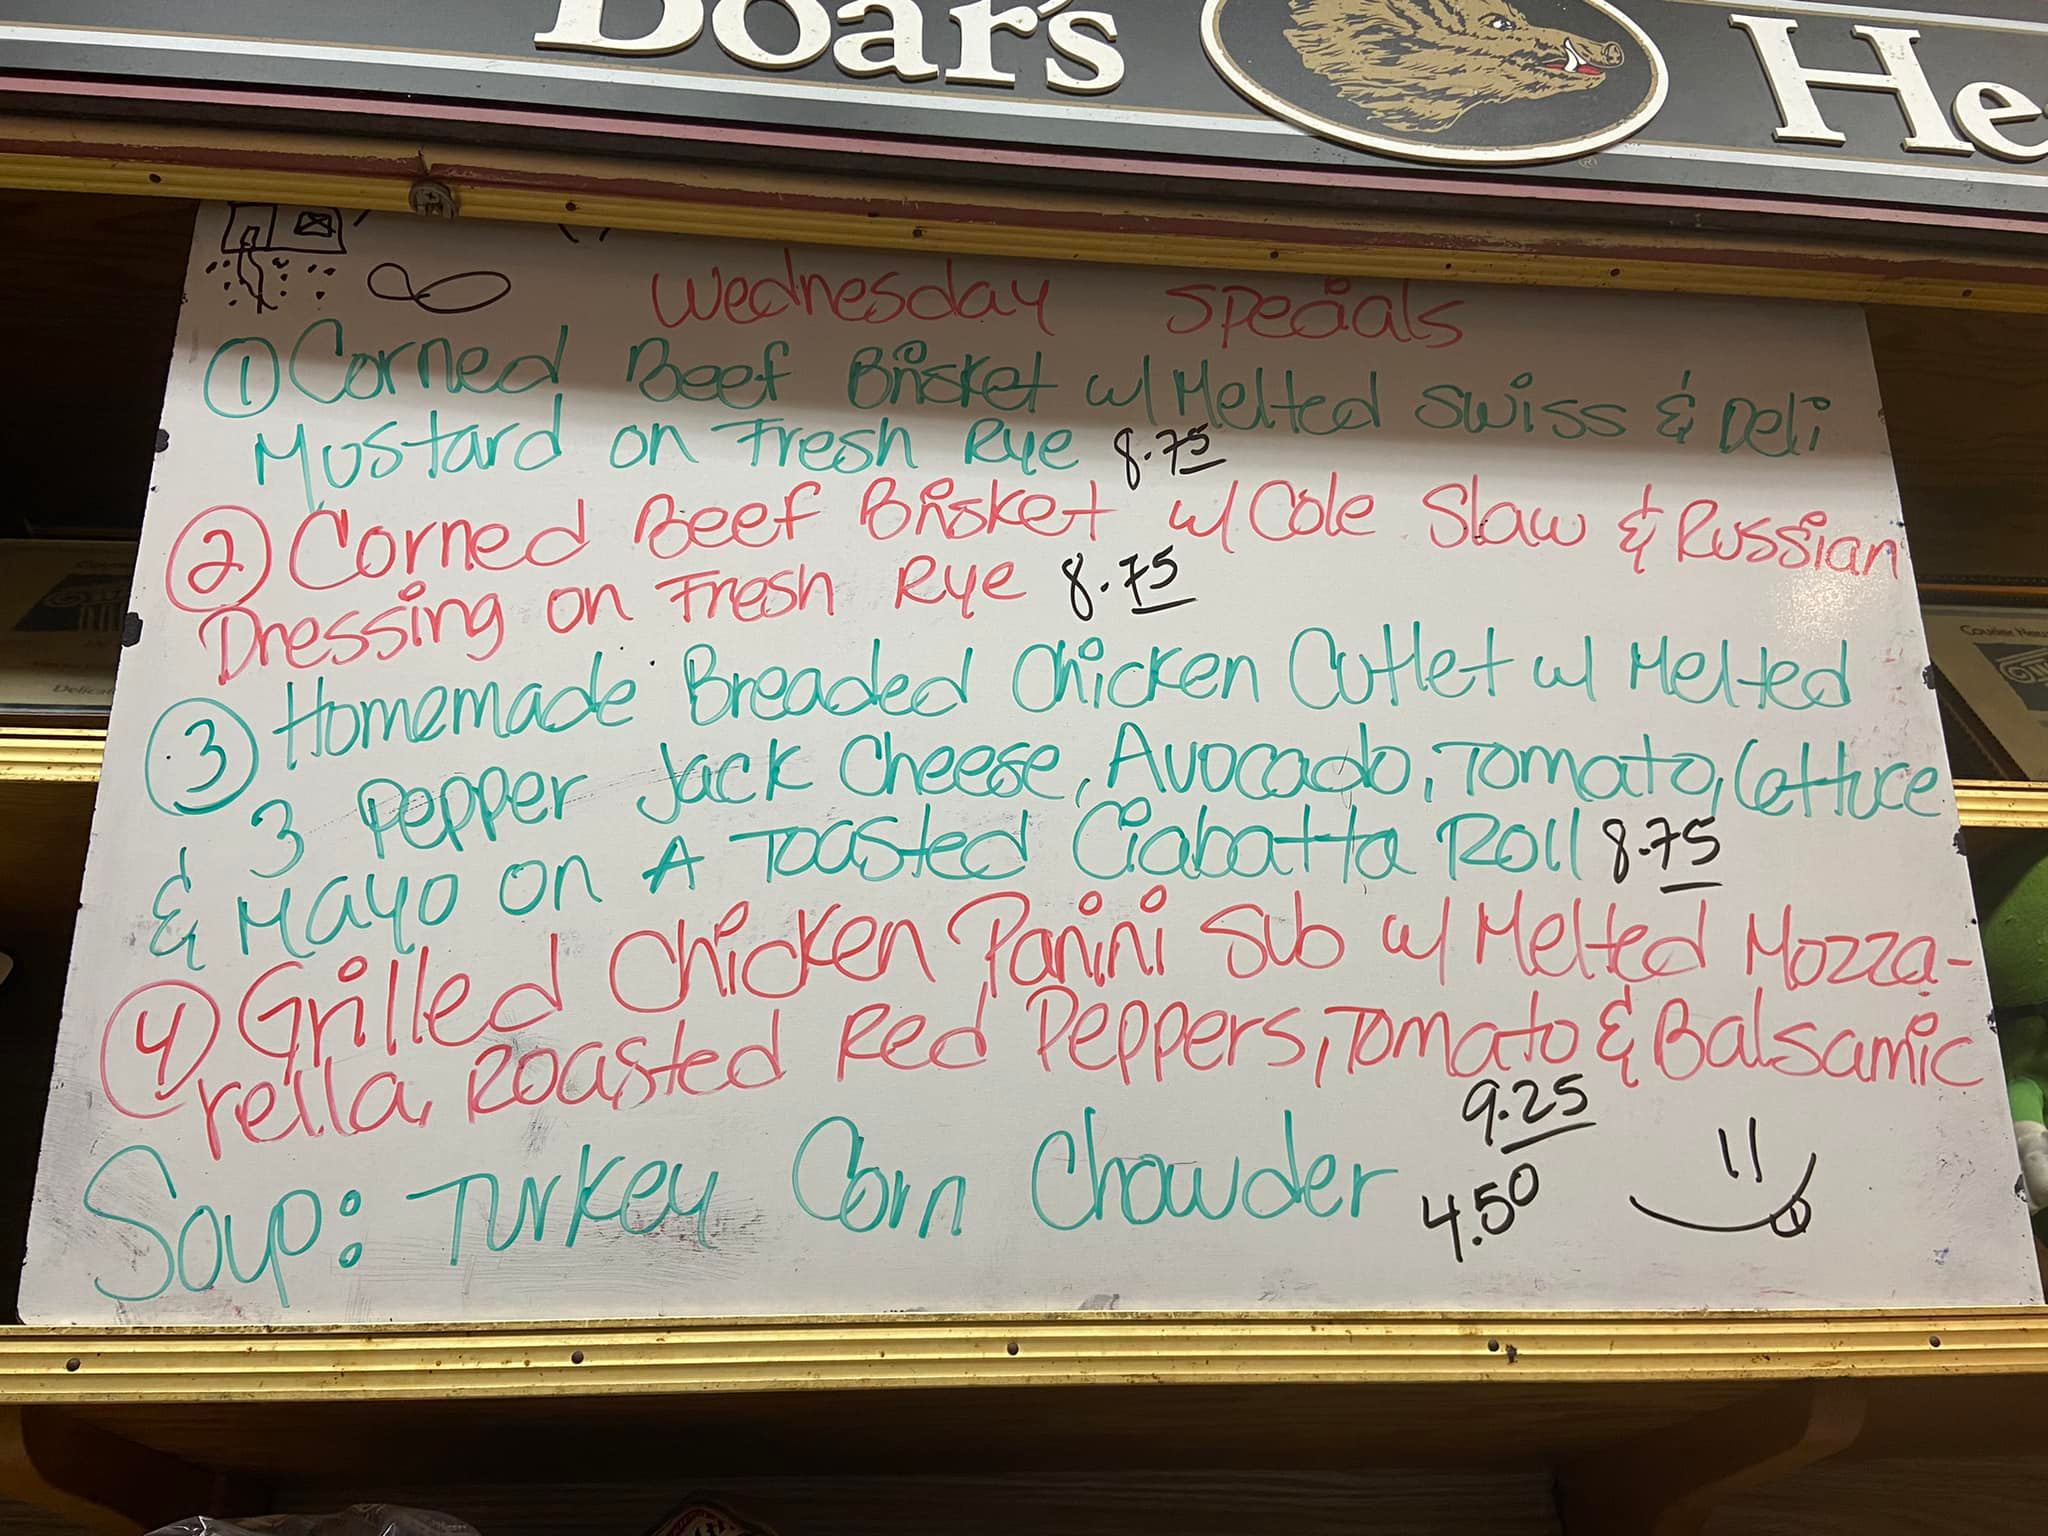 Boar's He
Wednesday Specials
① Corned Beef Brisket w/ Melted Swiss & Deli
Mustard on Fresh Rye 8.75
② Corned Beef Brisket w/ Cole Slaw & Russian
Dressing on Fresh Rye 8.75
③ Homemade Breaded Chicken Cutlet w/ Melted
3 Pepper Jack Cheese, Avocado, Tomato, Lettuce
& Mayo on A Toasted Ciabatta Roll 8.75
④ Grilled Chicken Panini Sub w/ Melted Mozza-
rella, Roasted Red Peppers, Tomato & Balsamic
9.25
Soup: Turkey Corn Chowder 4.50